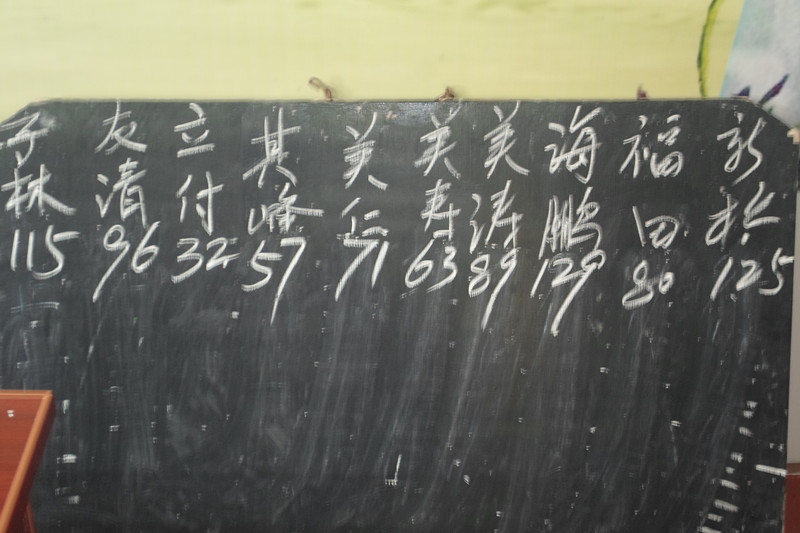 子林 115
友清 96
立付 32
其峰 57
美仁 71
美寿 63
美涛 89
海鹏 129
福田 80
新松 125